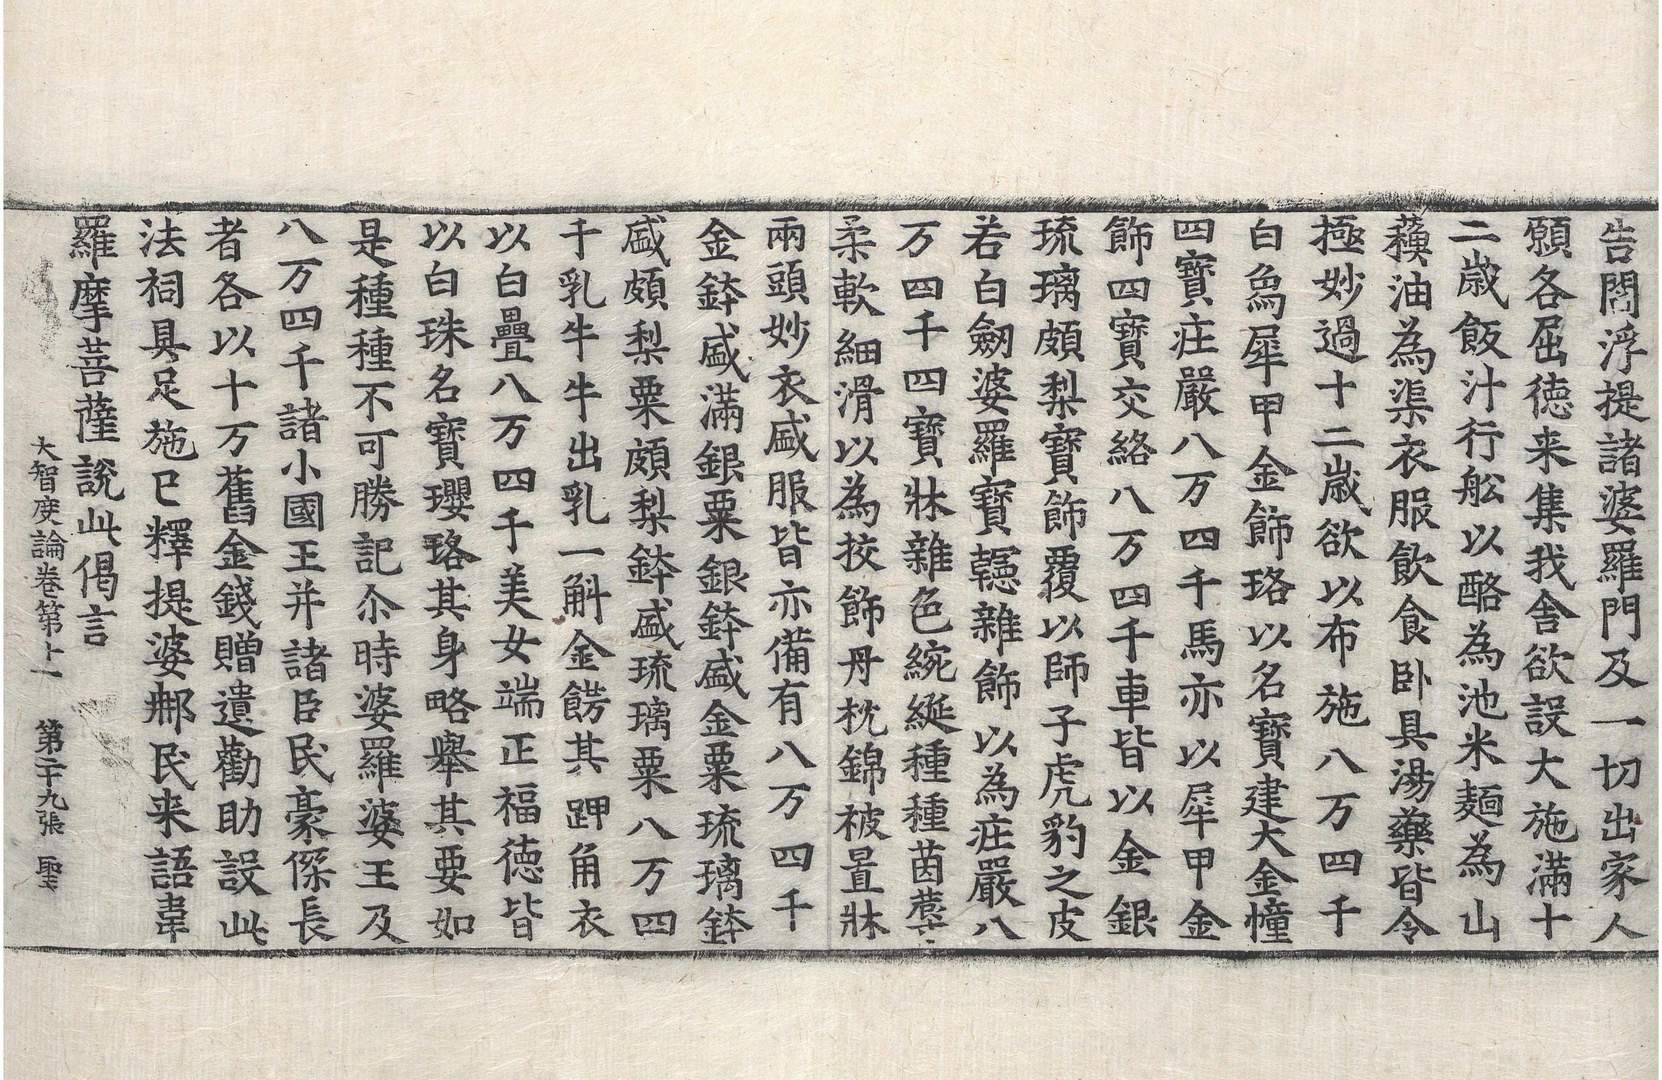 告閻浮提諸婆羅門及一切出家人
願各屈徳来集我舎欲設大施滿十
二歳飯汁行舩以酪為池米麺為山
蘓油為渠衣服飲食卧具湯藥皆令
極妙過十二歳欲以布施八万四千
白象犀甲金飾珞以名寶建大金幢
四寶莊嚴八万四千馬亦以犀甲金
飾四寶交絡八万四千車皆以金銀
琉璃頗梨寶飾覆以師子虎豹之皮
若白劒婆羅寶𢖍雜飾以為莊嚴八
万四千四寶牀雜色綩綖種種茵蓐
柔軟細滑以為挍飾丹枕錦被置牀
兩頭妙衣盛服皆亦備有八万四千
金鉢盛滿銀粟銀鉢盛金粟琉璃鉢
盛頗梨粟頗梨鉢盛琉璃粟八万四
千乳牛牛出乳一斛金餝其𧿲角衣
以白疊八万四千美女端正福徳皆
以白珠名寶瓔珞其身略舉其要如
是種種不可勝記尒時婆羅婆王及
八万四千諸小國王并諸臣民豪傑長
者各以十万舊金錢贈遺勸助設此
法祠具足施已釋提婆那民来語韋
羅摩菩薩說此偈言
大智度論卷第十一　第二十九張　聖